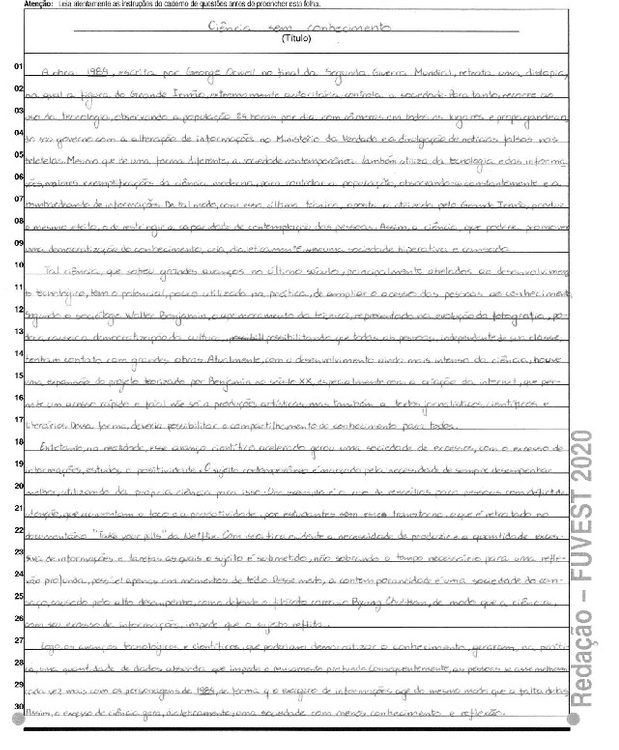 Atenção: Leia atentamente as instruções do caderno de questões antes de preencher esta folha.
Ciência sem conhecimento
(Título)
01 A obra 1984, escrita por George Orwell no final da Segunda Guerra Mundial, retrata uma distopia,
02 na qual a figura do Grande Irmão, extremamente autoritária, controla a sociedade. Para tanto, recorre ao
03 uso da tecnologia, observando a população 24 horas por dia com câmeras em todos os lugares e propagandean
04 do seu governo com a alteração de informações no Ministério da Verdade e a divulgação de notícias falsas nas
05 teletelas. Mesmo que de uma forma diferente, a sociedade contemporânea também utiliza da tecnologia e das informa-
06 ções, maiores exemplificações da ciência moderna, para controlar a população, observando-a constantemente e a
07 bombardeando de informações. De tal modo, com essa última técnica, oposta a utilizada pelo Grande Irmão, produz
08 o mesmo efeito, o de restringir a capacidade de contemplação das pessoas. Assim, a ciência, que poderia promover
09 uma democratização do conhecimento, cria, dialeticamente uma sociedade hiperativa e cansada.
10 Tal ciência, que sofreu grandes avanços no último século, principalmente atrelados ao desenvolvimen
11 to tecnológico, tem o potencial, pouco utilizado na prática, de ampliar o acesso das pessoas ao conhecimento.
12 Segundo o sociólogo Walter Benjamin, o aprimoramento da técnica, representado na evolução da fotografia, po-
13 deria causar a democratização da cultura, possibilitando que todas as pessoas, independente de sua classe,
14 tenham contato com grandes obras. Atualmente, com o desenvolvimento ainda mais intenso da ciência, houve
15 uma expansão do projeto teorizado por Benjamin no século XX, especialmente com a criação da internet, que per-
16 mite um acesso rápido e fácil não só a produções artísticas, mas também a textos jornalísticos, científicos e
17 literários. Dessa forma, deveria possibilitar o compartilhamento do conhecimento para todos.
18 Entretanto, na realidade, esse avanço científico acelerado gerou uma sociedade de excessos, com o excesso de
19 informações, estudos e positividade. O sujeito contemporâneo é marcado pela necessidade de sempre desempenhar
20 melhor, utilizando da própria ciência para isso. Um exemplo é o uso de remédios para pessoas com déficit de
21 atenção, que aumentam o foco e a produtividade, por estudantes sem esse transtorno, o que é retratado no
22 documentário "Take your pills" da Netflix. Com isso, fica evidente a necessidade de produzir e a quantidade exces-
23 siva de informações e tarefas as quais o sujeito é submetido, não sobrando o tempo necessário para uma refle-
24 xão profunda, possível apenas em momentos de tédio. Desse modo, a contemporaneidade é uma sociedade do can-
25 saço, causado pelo alto desempenho, como defende o filósofo coreano Byung Chul Han, de modo que a ciência,
26 com seu excesso de informações, impede que o sujeito reflita.
27 Logo os avanços tecnológicos e científicos, que poderiam democratizar o conhecimento, geraram, na práti-
28 ca, uma quantidade de dados absurda que impede o pensamento profundo. Consequentemente, as pessoas se assemelham
29 cada vez mais com os personagens de 1984, de forma que o exagero de informações age do mesmo modo que a falta delas.
30 Assim, o excesso de ciência gera, dialeticamente, uma sociedade com menos conhecimento e reflexão.
Redação – FUVEST 2020